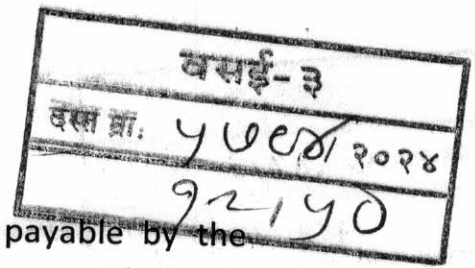 वसई-३
दस्त क्र. २०२४
१२/५०
payable by the